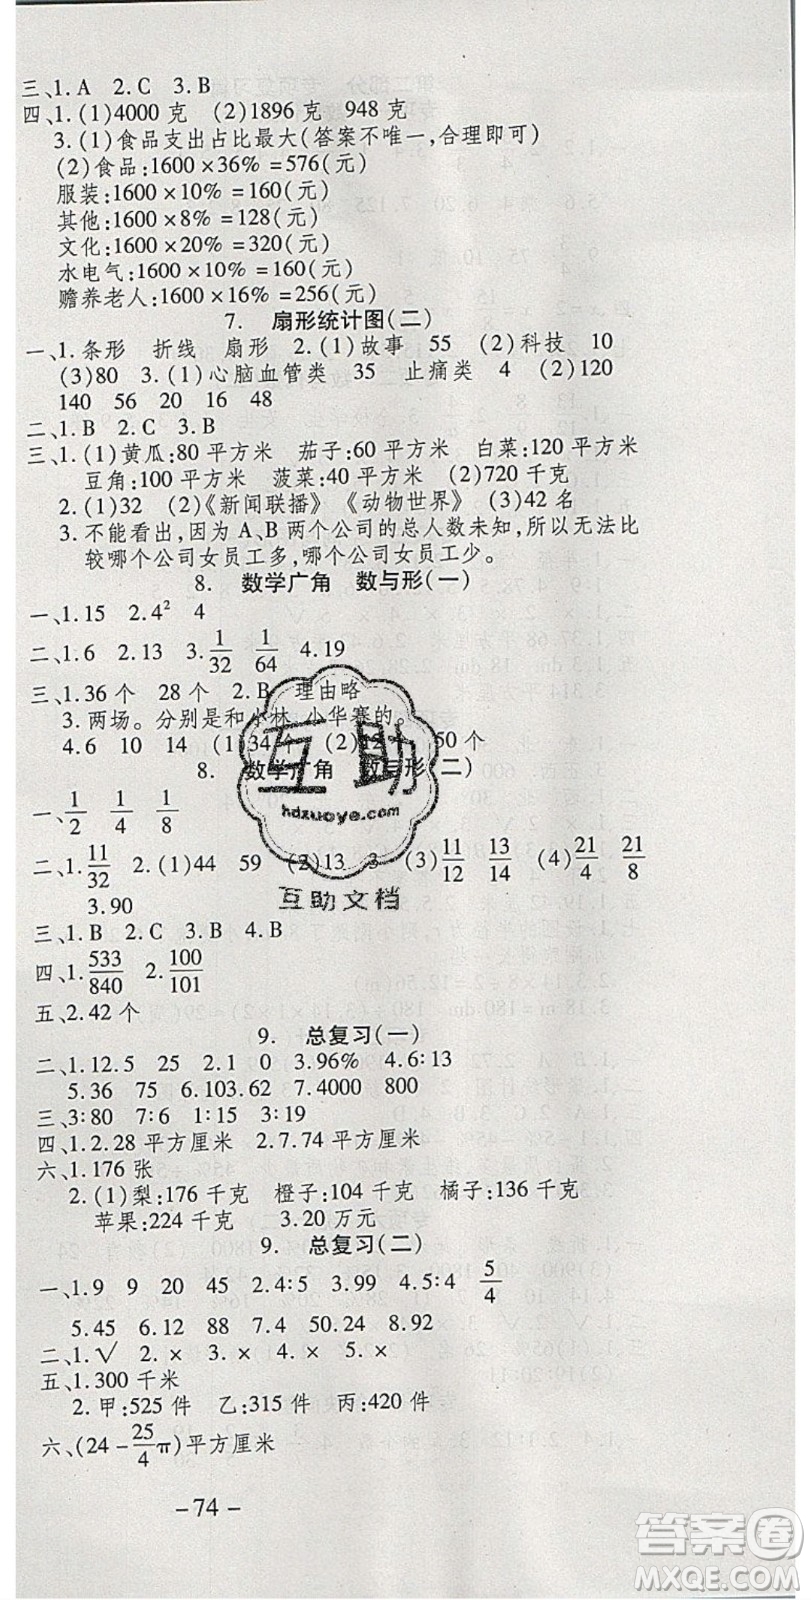 三、1.A 2.C 3.B
四、1.(1)4000 克 (2)1896 克 948 克
3.(1)食品支出占比最大(答案不唯一,合理即可)
(2)食品:1600×36%=576(元)
服装:1600×10%=160(元)
其他:1600×8%=128(元)
文化:1600×20%=320(元)
水电气:1600×10%=160(元)
赡养老人:1600×16%=256(元)
7. 扇形统计图(二)
一、1.条形 折线 扇形 2.(1)故事 55 (2)科技 10
(3)80 3.(1)心脑血管类 35 止痛类 4 (2)120
140 56 20 16 48
二、1.B 2.B 3.B
三、1.(1)黄瓜:80 平方米 茄子:60 平方米 白菜:120 平方米
豆角:100 平方米 菠菜:40 平方米 (2)720 千克
2.(1)32 (2)《新闻联播》《动物世界》 (3)42 名
3.不能看出,因为 A、B 两个公司的总人数未知,所以无法比
较哪个公司女员工多,哪个公司女员工少。
8. 数学广角 数与形(一)
一、1.15 2.4² 4
二、1.6 2.13 3.1/32 1/64 4.19
三、1.36 个 28 个 2.B 理由略
3.两场。分别是和小林、小华赛的。
4.6 10 14 (1)34 个 (2)12个 50 个
8. 数学广角 数与形(二)
一、1/2 1/4 1/8
二、1.11/32 2.(1)44 59 (2)13 3 (3)11/12 13/14 (4)21/4 21/8
3.90
三、1.B 2.C 3.B 4.B
四、1.533/840 2.100/101
五、2.42 个
9. 总复习(一)
二、1.12.5 25 2.1 0 3.96% 4.6∶13
5.36 75 6.103.62 7.4000 800
三、3∶80 7∶6 1∶15 3∶19
四、1.2.28 平方厘米 2.7.74 平方厘米
六、1.176 张
2.(1)梨:176 千克 橙子:104 千克 橘子:136 千克
苹果:224 千克 3.20 万元
9. 总复习(二)
一、1.9 9 20 45 2.4∶5 3.99 4.5∶4 5/4
5.45 6.12 88 7.4 50.24 8.92
二、1.√ 2.× 3.× 4.× 5.×
五、1.300 千米
2.甲:525 件 乙:315 件 丙:420 件
六、(24-25/4π)平方厘米
-74-
互助
hdzuoye.com
互助文档
答案圈
MXQE.COM